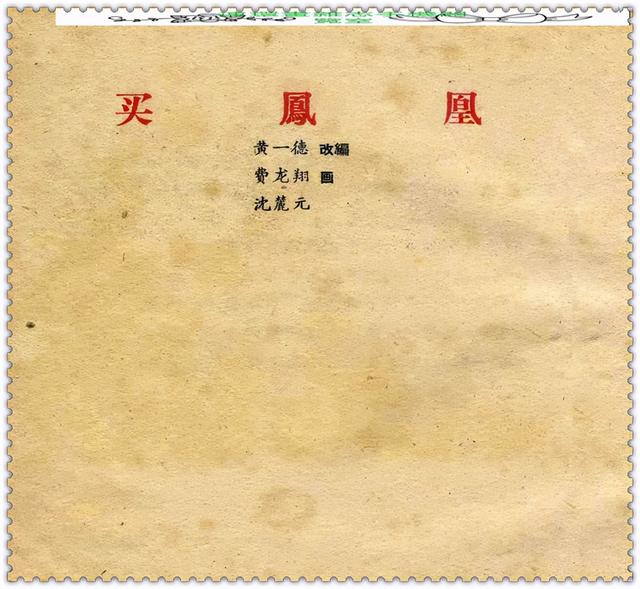 买鳳凰
黄一德 改編
費龙翔 画
沈麓元